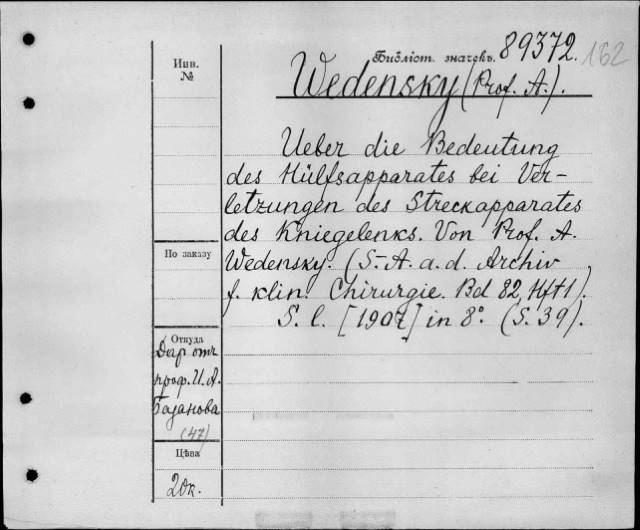 Инв.
№
Библіот. значекъ. 89372.
162
Wedensky (Prof. A.).
Ueber die Bedeutung
des Hülfsapparates bei Ver-
letzungen des Streckapparates
des Kniegelenks. Von Prof. A.
Wedensky. (S.-A. a. d. Archiv
f. klin. Chirurgie. Bd 82, Hft 1).
S. l. [1907] in 8°. (S. 39).
По заказу
Откуда
Дар отъ
проф. И. А.
Базанова
(47)
Цѣва
20к.